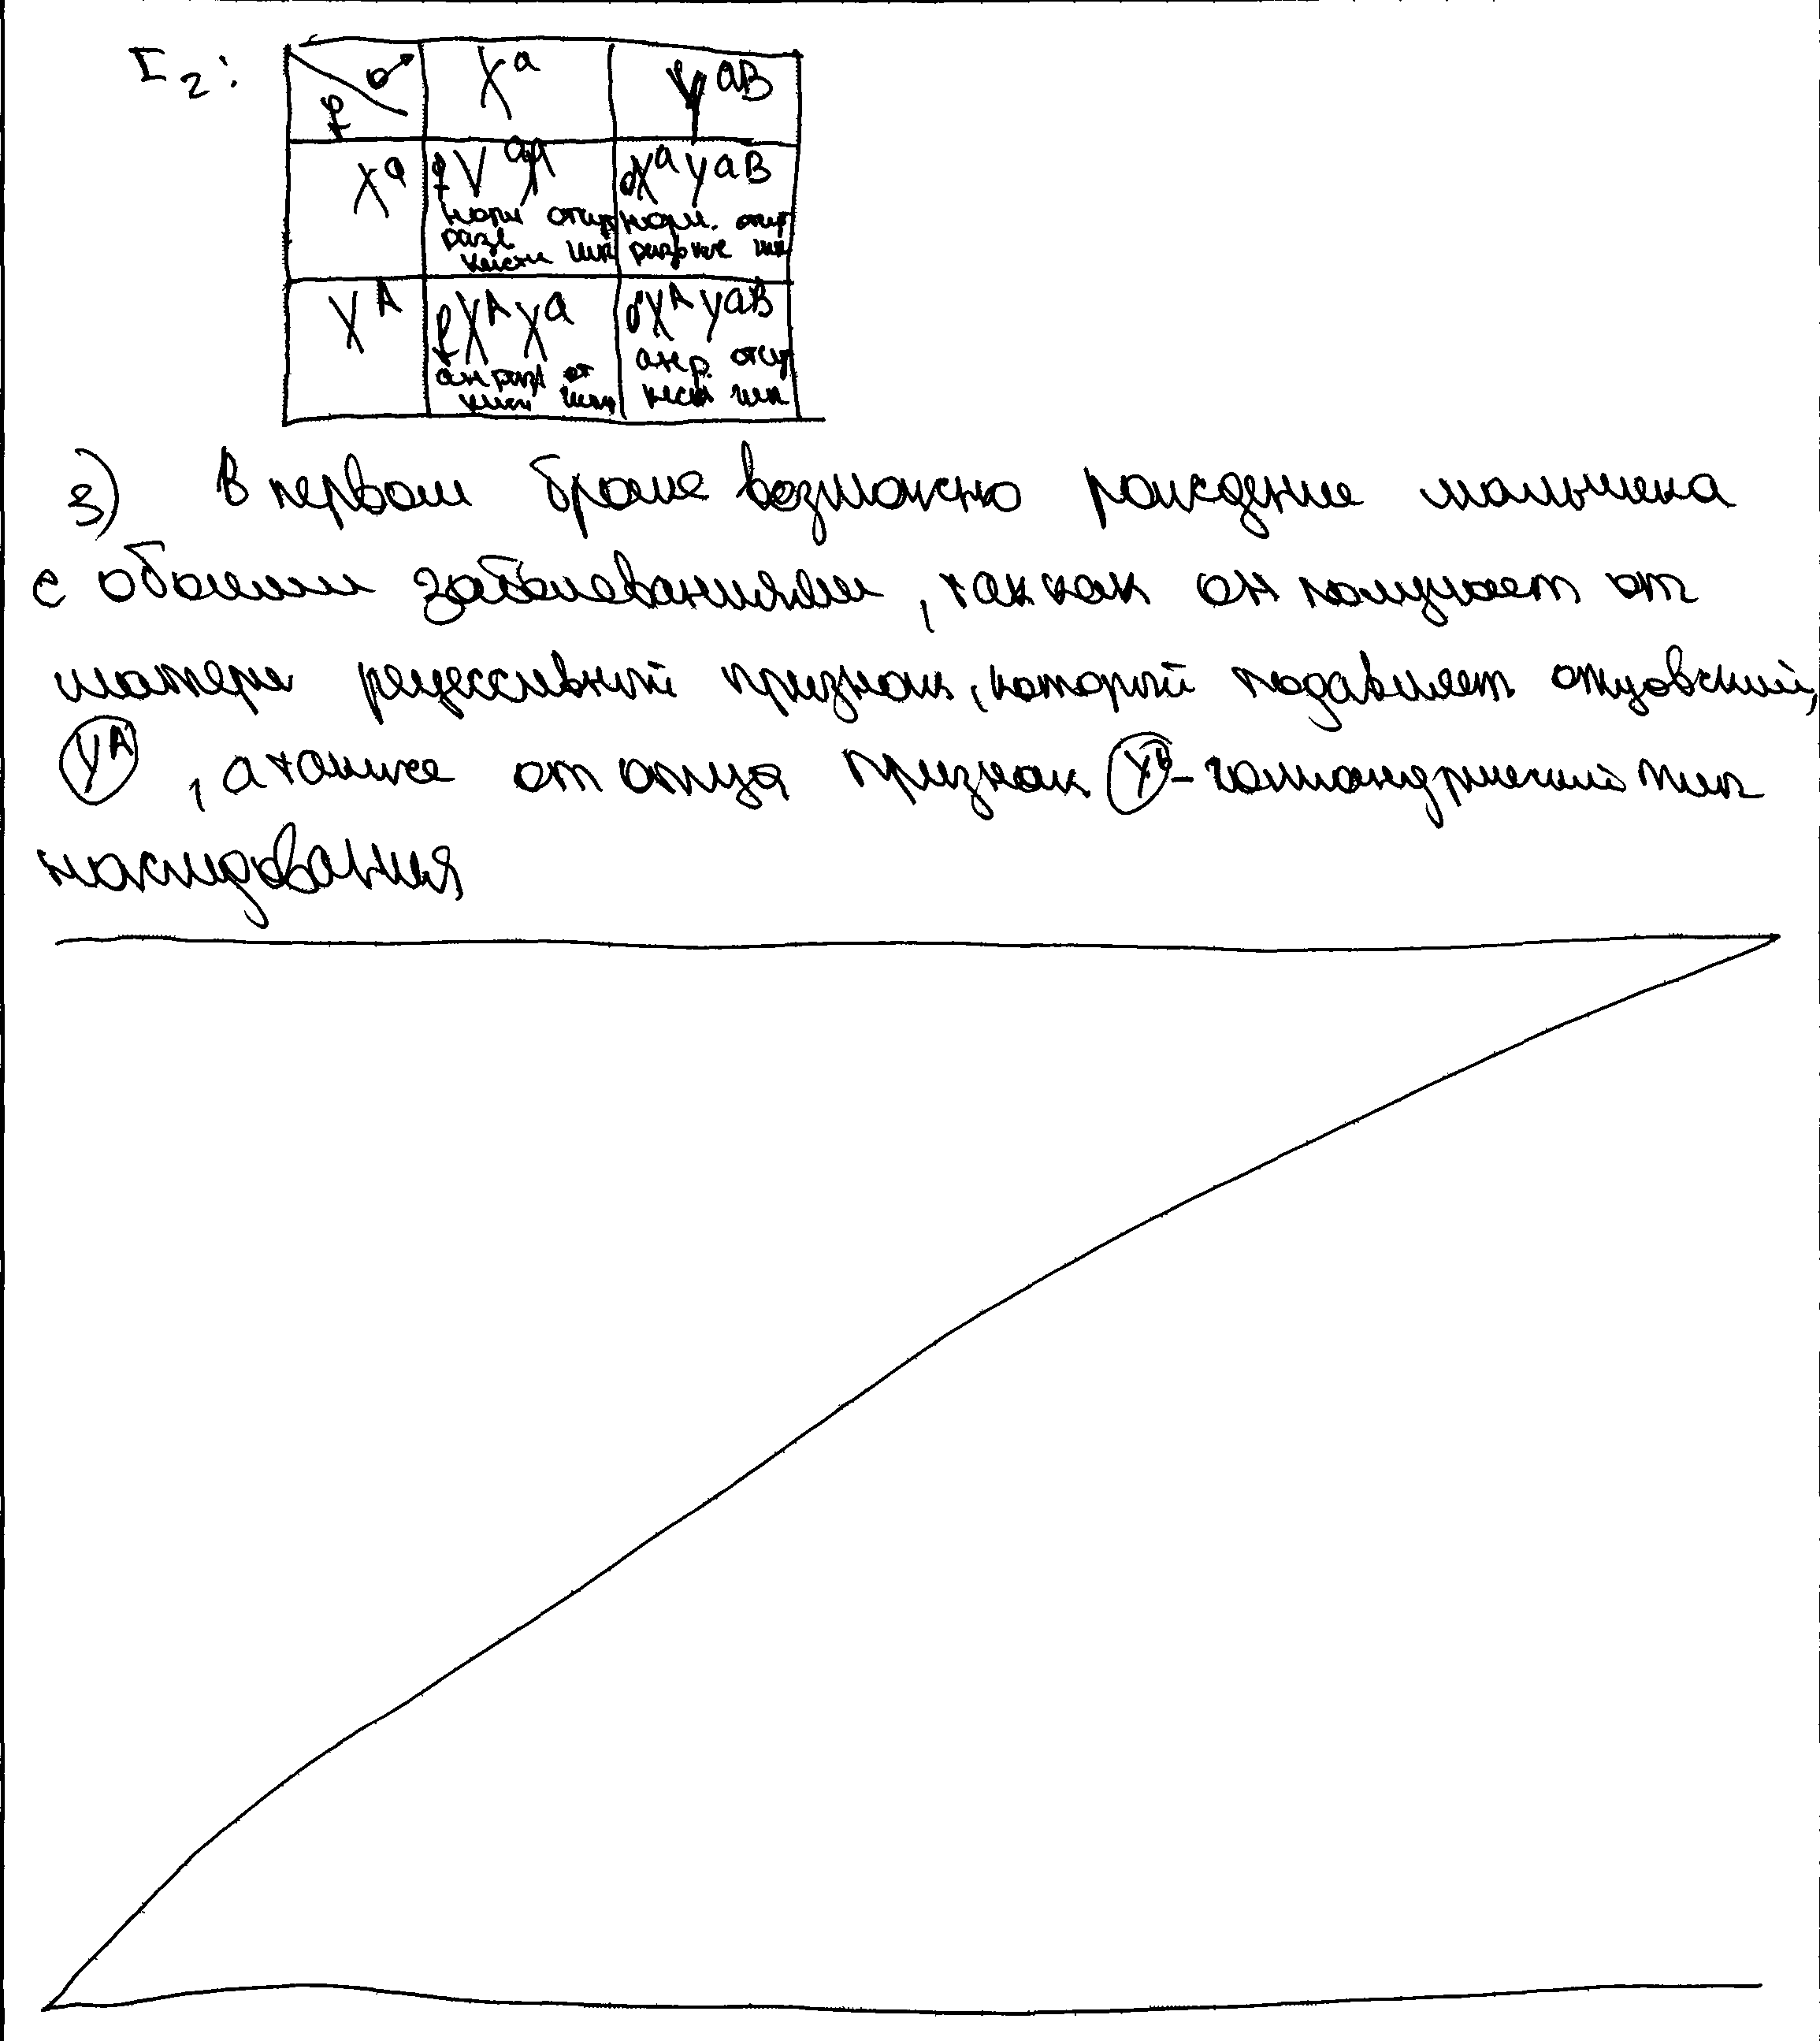 I₂:
♀ ♂ Xᵃ Yᵃᴮ
Xᵃ ♀ ♂XᵃYᵃᴮ
норм отсут норм. отсут
разв
кисти
Xᴬ ♀XᴬXᵃ ♂XᴬYᵃᴮ
отсут
3) В первом браке возможно рождение мальчика
с обоими заболеваниями, так как он получает от
матери рецессивный признак, который подавляет отцовский,
Yᴬ, а также от отца признак Yᵇ - голандрический тип
наследования